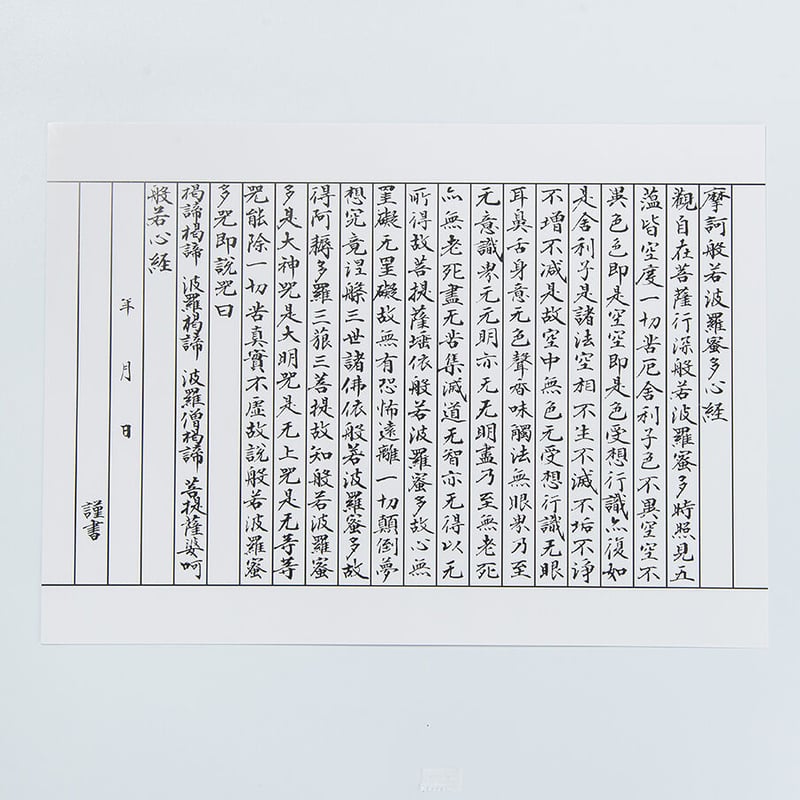 摩訶般若波羅蜜多心経
觀自在菩薩行深般若波羅蜜多時照見五
蕰皆空度一切苦厄舍利子色不異空空不
異色色即是空空即是色受想行識亦復如
是舍利子是諸法空相不生不滅不垢不浄
不增不減是故空中無色无受想行識无眼
耳鼻舌身意无色聲香味觸法無眼界乃至
无意識界无无明亦无无明盡乃至無老死
亦無老死盡无苦集滅道无智亦无得以无
所得故菩提薩埵依般若波羅蜜多故心無
罣礙无罣礙故無有恐怖遠離一切顛倒夢
想究竟涅槃三世諸佛依般若波羅蜜多故
得阿耨多羅三藐三菩提故知般若波羅蜜
多是大神咒是大明咒是无上咒是无等等
咒能除一切苦真實不虛故說般若波羅蜜
多咒即說咒曰
揭諦揭諦 波羅揭諦 波羅僧揭諦 菩提薩婆呵
般若心経
年 月 日
謹書